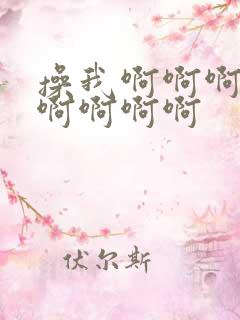 操我啊啊啊
啊啊啊啊
伏尔斯